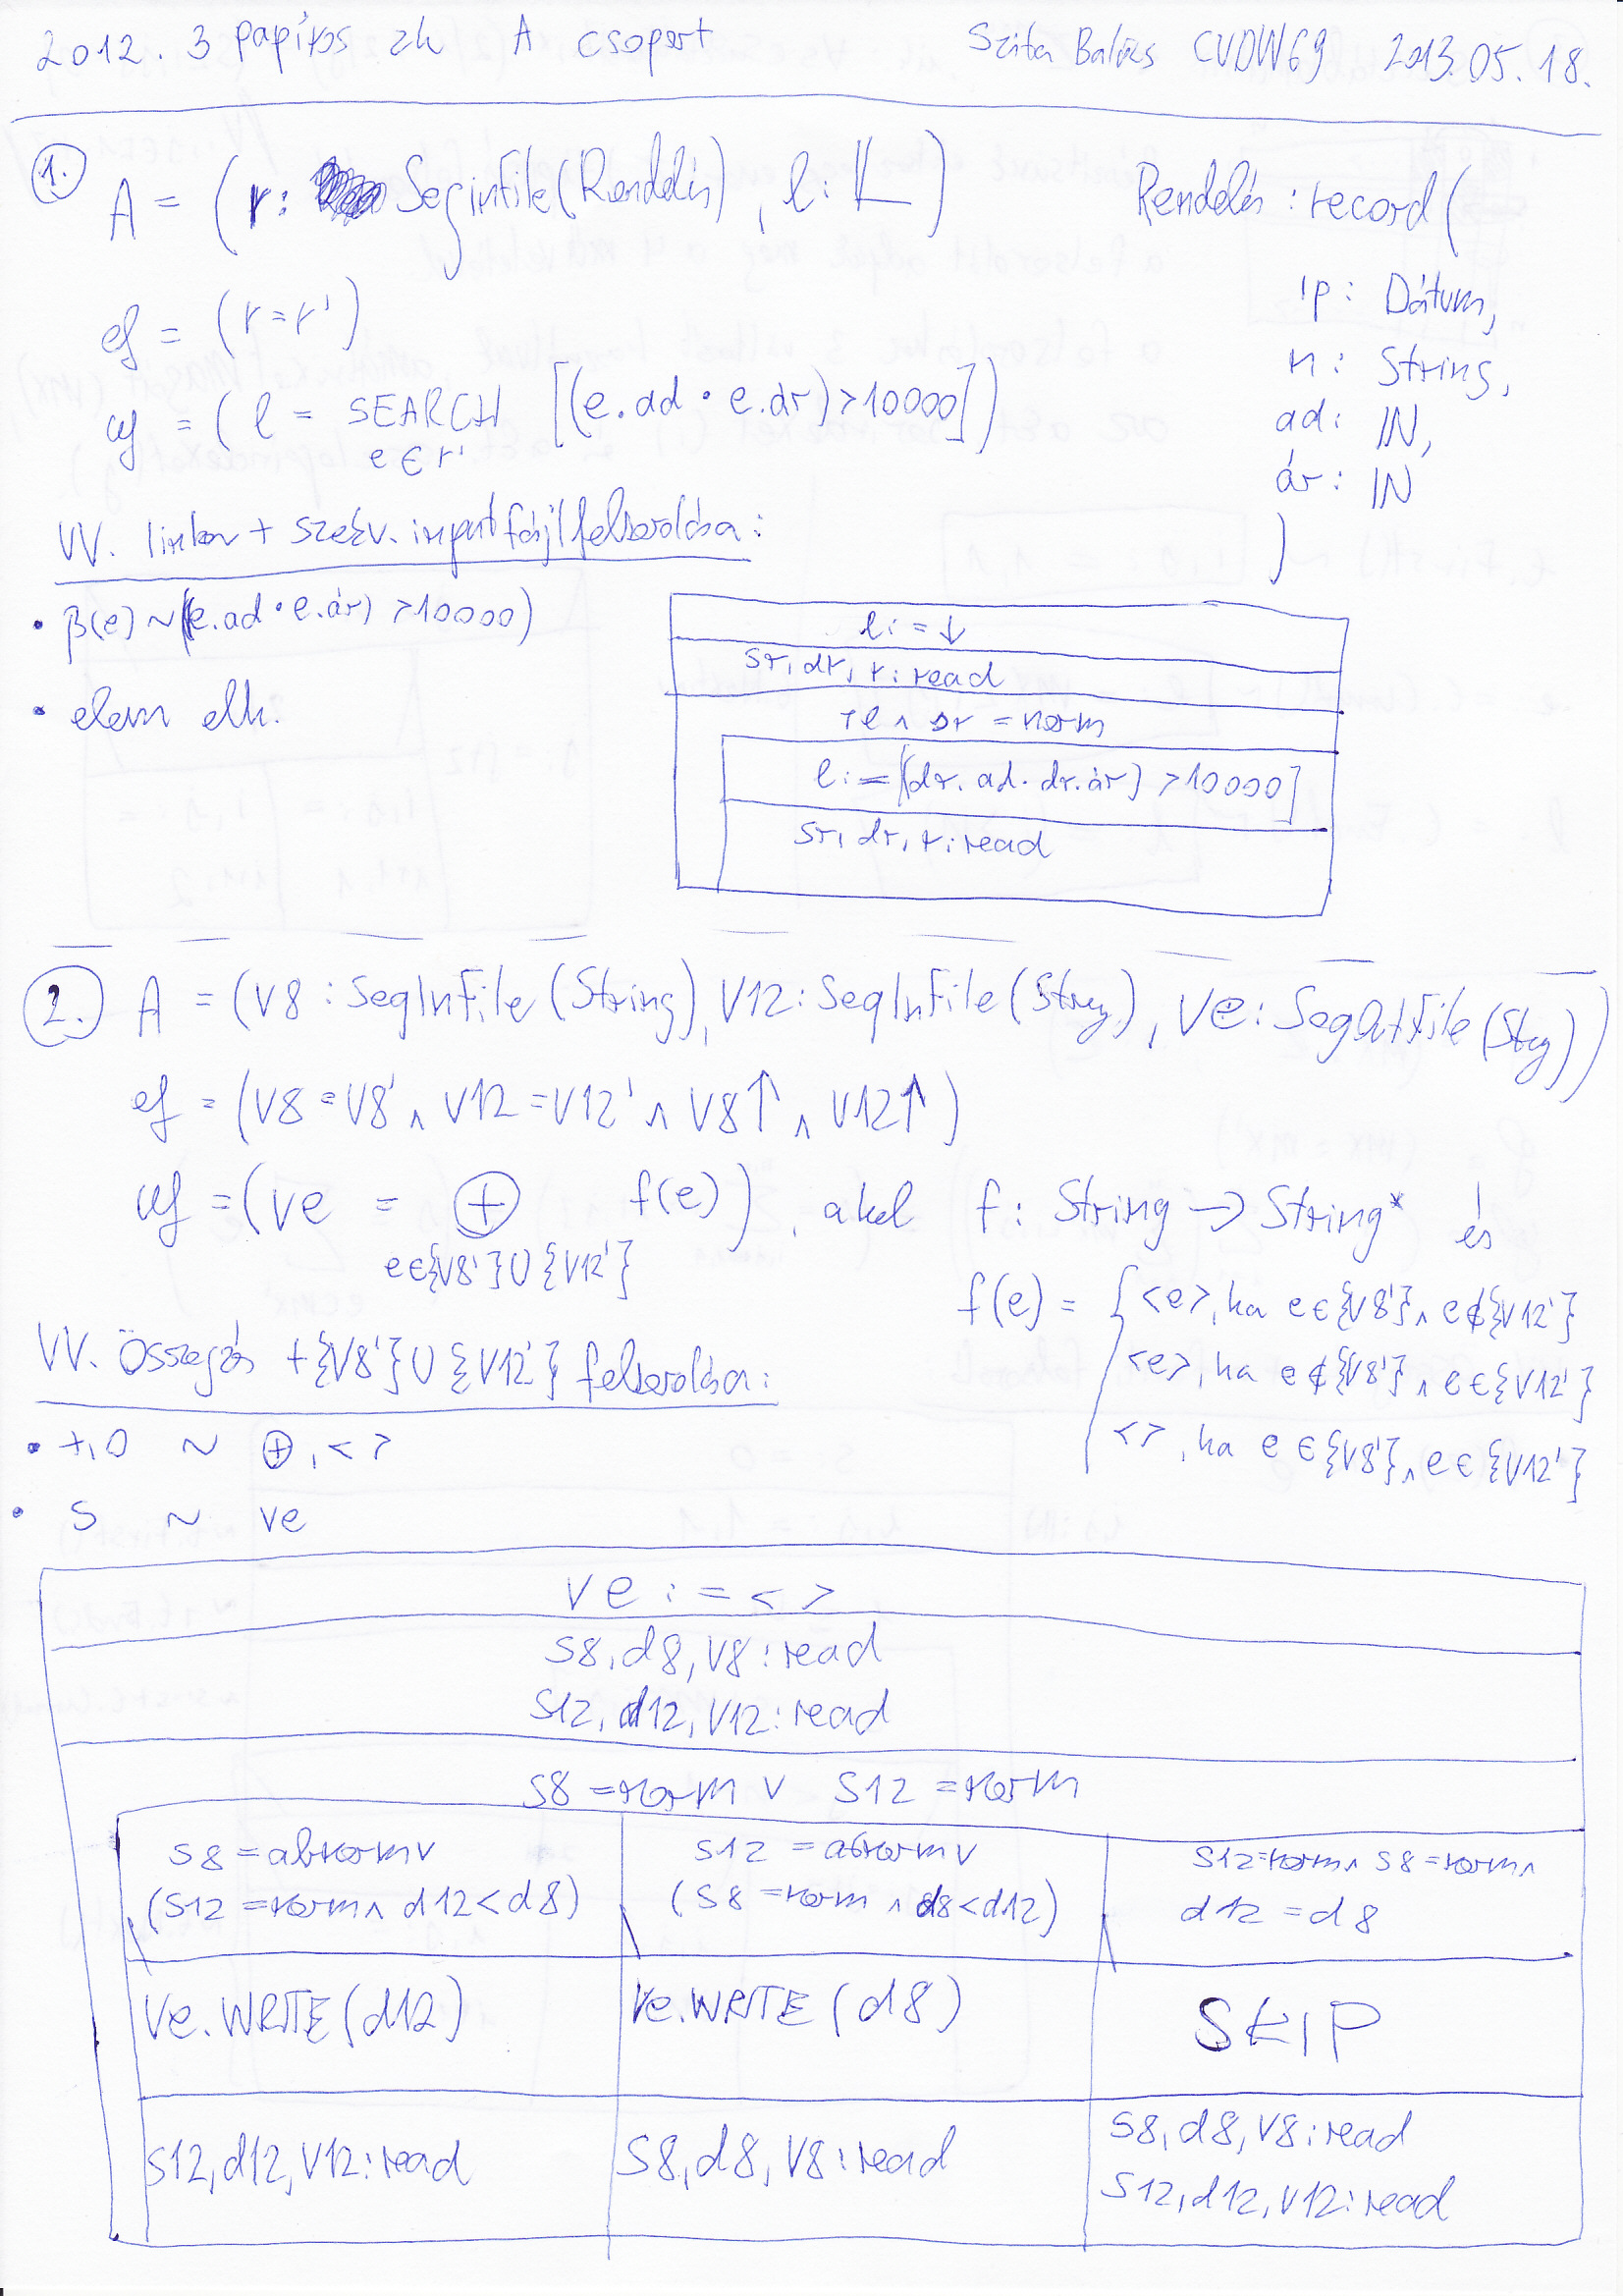 2012. 3 papíros zh A csoport Szita Balázs CVDW69 2013.05.18.
1. A = (r: SeqInFile(Rendelés), l: 𝕃) Rendelés: record(
ip: Dátum,
n: String,
ad: ℕ,
ár: ℕ
)
ef = (r = r')
uf = (l = SEARCH [(e.ad · e.ár) > 10000])
e ∈ r'
VV. linker + szekv. input fájl felsorolása:
• β(e) ~ (e.ad · e.ár) > 10000)
• elem elh.
l := ↓
sr, dr, r: read
¬l ∧ sr = norm
l := [(dr.ad · dr.ár) > 10000]
sr, dr, r: read
2. A = (V8: SeqInFile(String), V12: SeqInFile(String), Ve: SeqOutFile(Stng))
ef = (V8 = V8' ∧ V12 = V12' ∧ V8↑ ∧ V12↑)
uf = (ve = ⊕ f(e)), ahol f: String → String* és
e∈{V8'} ∪ {V12'}
f(e) = { <e>, ha e ∈ {V8'} ∧ e ∉ {V12'}
<e>, ha e ∉ {V8'} ∧ e ∈ {V12'}
<>, ha e ∈ {V8'} ∧ e ∈ {V12'}
VV. Összegzés + {V8'} ∪ {V12'} felsorolása:
• +, 0 ~ ⊕, < >
• s ~ ve
ve := < >
S8, d8, V8: read
S12, d12, V12: read
S8 = norm ∨ S12 = norm
S8 = abnorm ∨
(S12 = norm ∧ d12 < d8)
S12 = abnorm ∨
(S8 = norm ∧ d8 < d12)
S12 = norm ∧ S8 = norm ∧
d12 = d8
Ve.WRITE(d12)
Ve.WRITE(d8)
SKIP
S12, d12, V12: read
S8, d8, V8: read
S8, d8, V8: read
S12, d12, V12: read